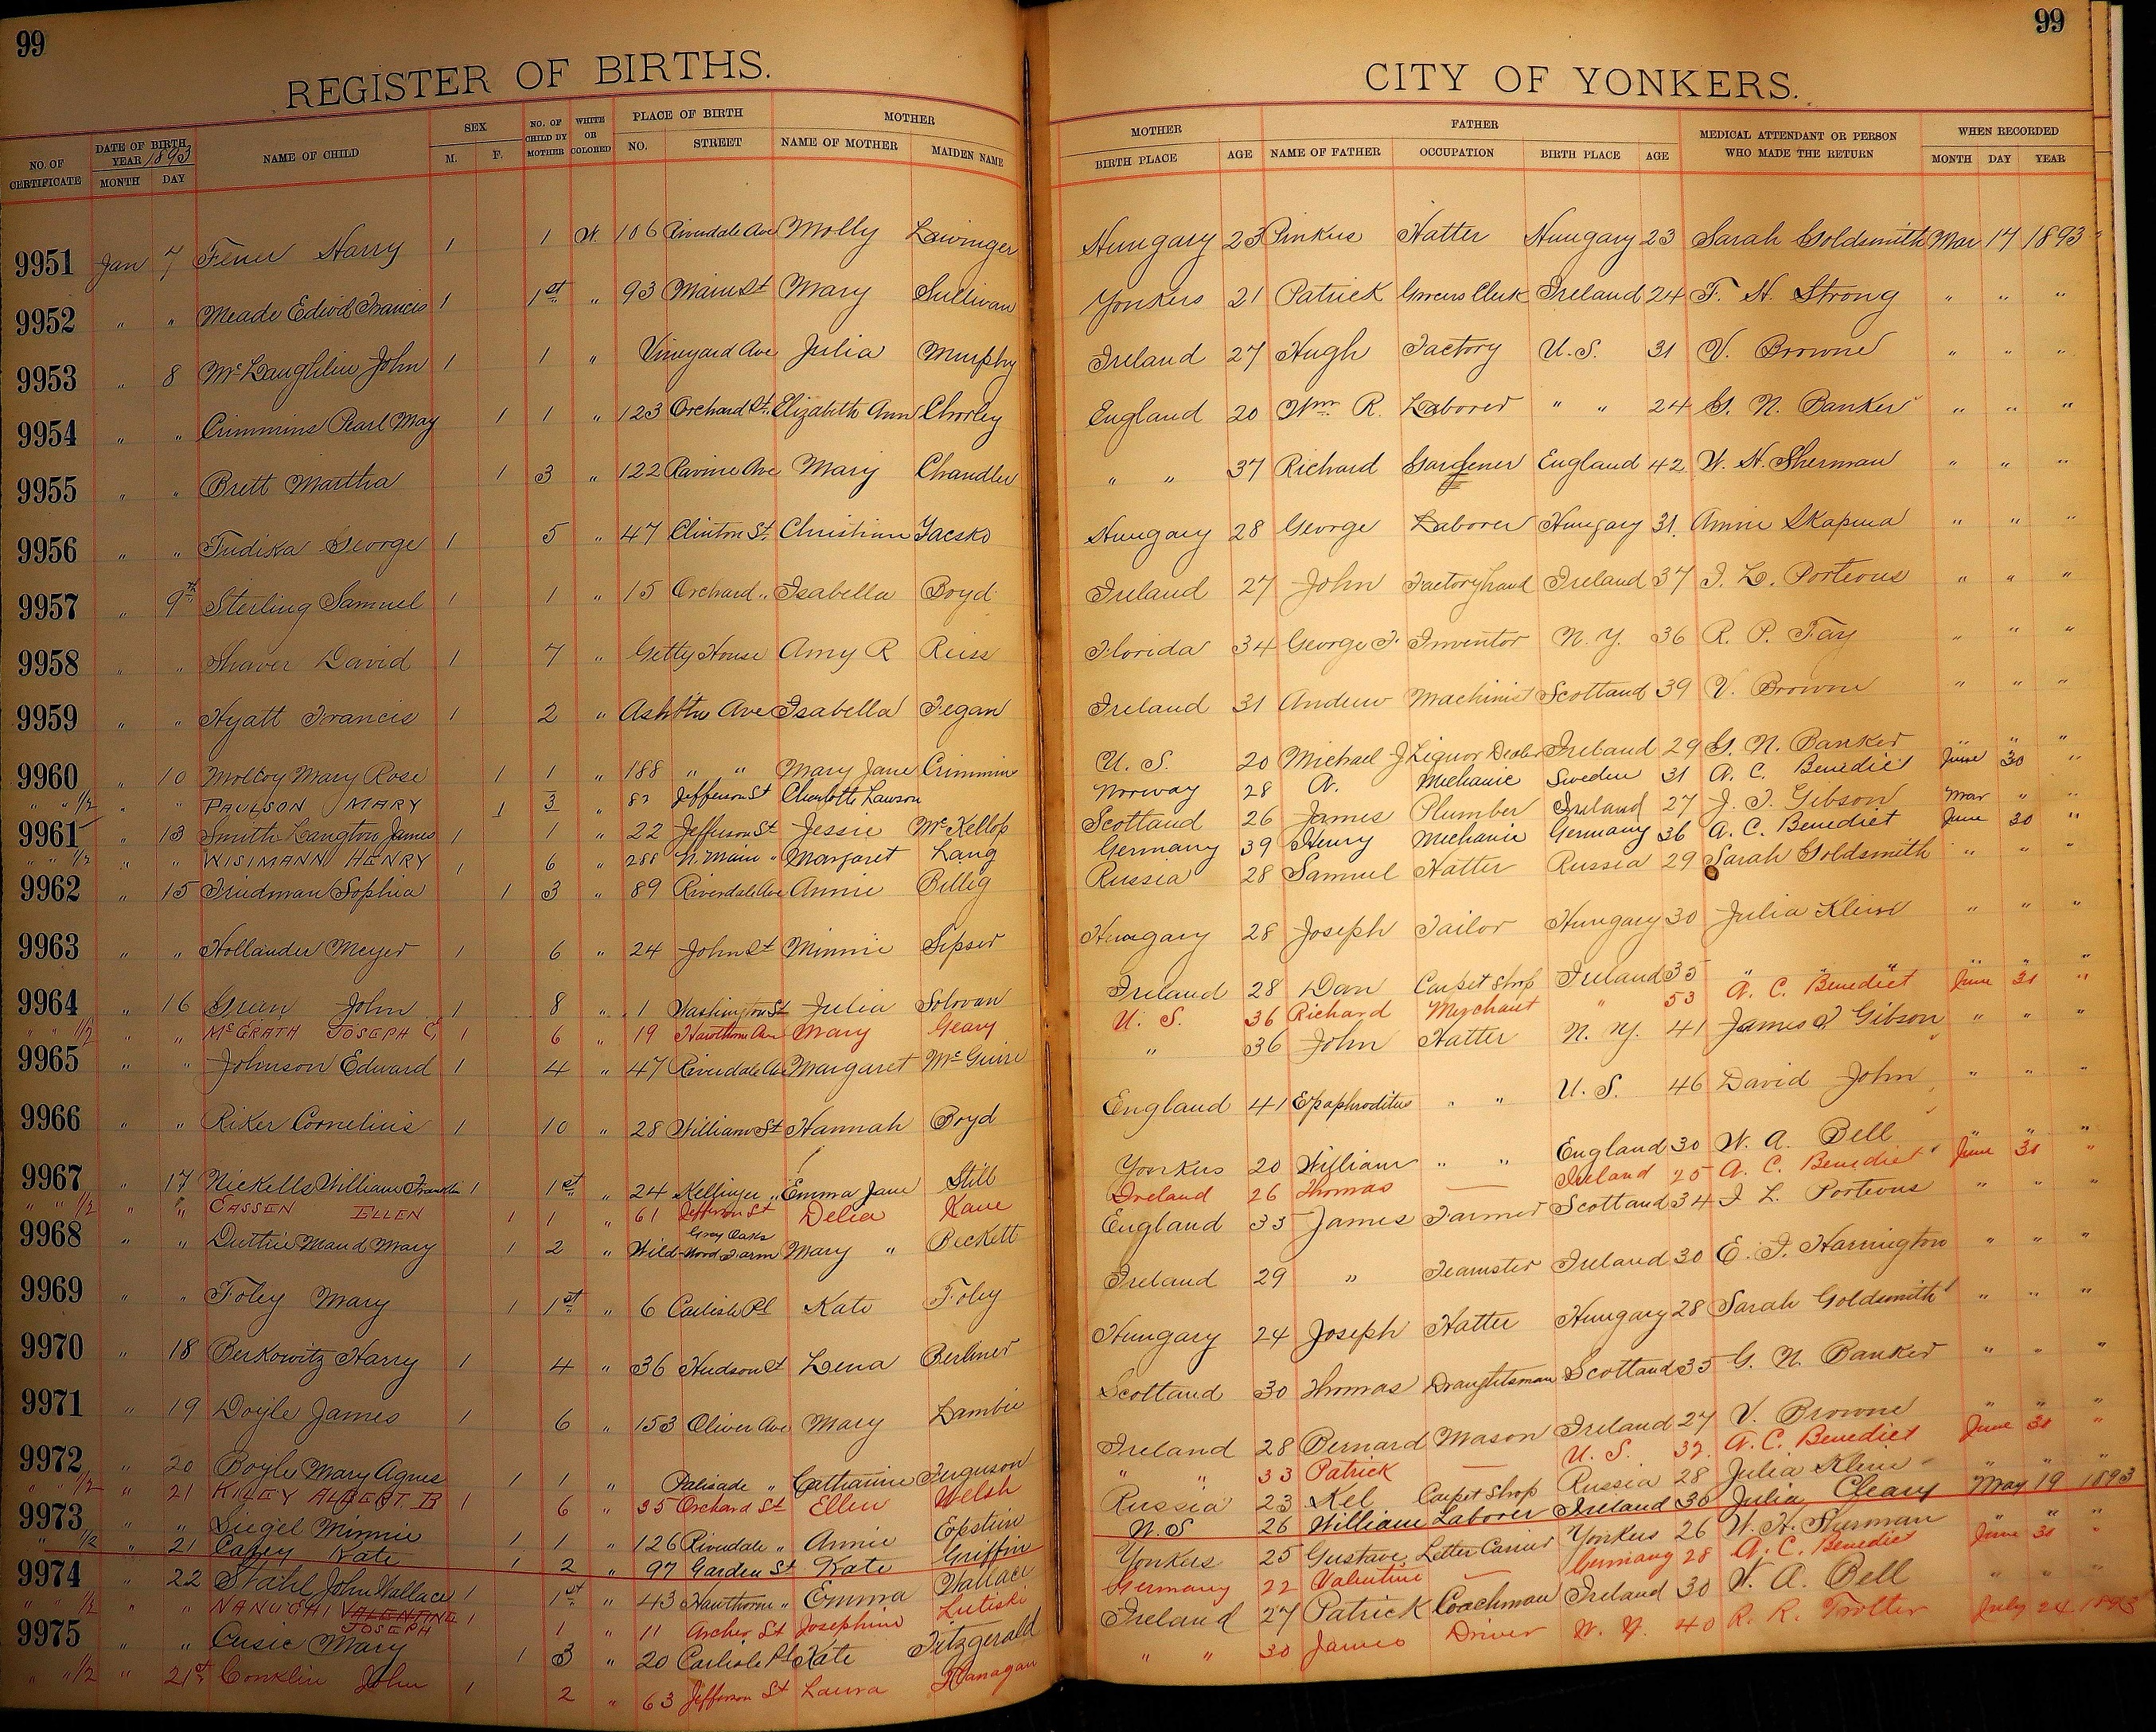 99
REGISTER OF BIRTHS.
NO. OF CERTIFICATE DATE OF BIRTH YEAR 1893 MONTH DAY NAME OF CHILD SEX M. F. NO. OF CHILD BY MOTHER WHITE OR COLORED PLACE OF BIRTH NO. STREET MOTHER NAME OF MOTHER MAIDEN NAME
9951 Jan 7 Harry 1 1 W. 106 Riverdale Ave Molly
9952 " " Meade Edwd Francis 1 1st " 93 Main St Mary Sullivan
9953 " 8 McLaughlin John 1 1 " Vineyard Ave Julia Murphy
9954 " " Crimmins Pearl May 1 1 " 123 Orchard St. Elizabeth Ann Chorley
9955 " " Brett Martha 1 3 " 122 Ravine Ave Mary Chandler
9956 " " George 1 5 " 47 Clinton St. Christina
9957 " 9th Sterling Samuel 1 1 " 15 Orchard " Isabella Boyd
9958 " " Shaver David 1 7 " Getty House Amy R
9959 " " Hyatt Francis 1 2 " Ashbtn Ave Isabella Fegan
9960 " 10 Molloy Mary Rose 1 1 " 188 " " Mary Jane Crimmin
" " 1/2 " " PAULSON MARY 1 3 " 82 Jefferson St Charlotte Lawson
9961 " 13 Smith Langton James 1 1 " 22 Jefferson St Jessie McKellop
" " 1/2 " " WISIMANN HENRY 1 6 " 288 N. Main " Margaret Lang
9962 " 15 Friedman Sophia 1 3 " 89 Riverdale Ave Annie Billig
9963 " " Hollander Meyer 1 6 " 24 John St Minnie Sipser
9964 " 16 John 1 8 " 1 Washington St Julia
" " 1/2 " " McGRATH JOSEPH C. 1 6 " 19 Hawthorne Ave Mary Geary
9965 " " Johnson Edward 1 4 " 47 Riverdale Ave Margaret McGuire
9966 " " Riker Cornelius 1 10 " 28 William St Hannah Boyd
9967 " 17 Nickells William Franklin 1 1st " 24 Kellinger " Emma Jane Still
" " 1/2 " " CASSEN ELLEN 1 1 " 61 Jefferson St Delia Kane
9968 " " Duthie Maud Mary 1 2 " Grey Oaks Wild-Wood Farm Mary " Beckett
9969 " " Foley Mary 1 1st " 6 Carlisle Pl Kate Foley
9970 " 18 Berkowitz Harry 1 4 " 36 Hudson St Lena Berliner
9971 " 19 Doyle James 1 6 " 153 Oliver Ave Mary Lambie
9972 " 20 Boyle Mary Agnes 1 1 " Palisade " Catharine Ferguson
" " 1/2 " 21 KILEY ALBERT B 1 6 " 35 Orchard St Ellen Welsh
9973 " " Siegel Minnie 1 1 " 126 Riverdale " Annie Epstein
" 1/2 " 21 Kate 1 2 " 97 Garden St Kate Griffin
9974 " 22 Stahl John Wallace 1 1st " 43 Hawthorne " Emma Wallace
" " 1/2 " " VALENTINE JOSEPH 1 1 " 11 Archer St Josephine
9975 " " Cusic Mary 1 3 " 20 Carlisle Pl Kate Fitzgerald
" " 1/2 " 21st Conklin John 1 2 " 63 Jefferson St Laura Flanagan
99
CITY OF YONKERS.
MOTHER BIRTH PLACE AGE FATHER NAME OF FATHER OCCUPATION BIRTH PLACE AGE MEDICAL ATTENDANT OR PERSON WHO MADE THE RETURN WHEN RECORDED MONTH DAY YEAR
Hungary 23 Pinkus Hatter Hungary 23 Sarah Goldsmith Mar 17 1893
Yonkers 21 Patrick Grocers Clerk Ireland 24 F. H. Strong " " "
Ireland 27 Hugh Factory U.S. 31 V. Browne " " "
England 20 Wm. R. Laborer " " 24 G. N. Banker " " "
" " 37 Richard Gardener England 42 W. H. Sherman " " "
Hungary 28 George Laborer Hungary 31. Annie Skapina " " "
Ireland 27 John Factory hand Ireland 37 J. L. Porteous " " "
Florida 34 George F. Inventor N. Y. 36 R. P. Fay " " "
Ireland 31 Andrew Machinist Scotland 39 V. Browne " " "
U. S. 20 Michael J Liquor Dealer Ireland 29 G. N. Banker " " "
Norway 28 A. Mechanic Sweden 31 A. C. Benedict June 30 "
Scotland 26 James Plumber Ireland 27 J. J. Gibson Mar " "
Germany 39 Henry Mechanic Germany 36 A. C. Benedict June 30 "
Russia 28 Samuel Hatter Russia 29 Sarah Goldsmith " " "
Hungary 28 Joseph Tailor Hungary 30 Julia Klein " " "
Ireland 28 Dan Carpet Shop Ireland 35 " " " " " "
U. S. 36 Richard Merchant " 53 A. C. Benedict June 31 "
" 36 John Hatter N. Y. 41 James J Gibson " " "
England 41 Epaphroditus " " U. S. 46 David John " " "
Yonkers 20 William " " England 30 W. A. Bell " " "
Ireland 26 Thomas — Ireland 25 A. C. Benedict June 30 "
England 33 James Farmer Scotland 34 J L. Porteous " " "
Ireland 29 " Teamster Ireland 30 E. J. Harrington " " "
Hungary 24 Joseph Hatter Hungary 28 Sarah Goldsmith " " "
Scotland 30 Thomas Draughtsman Scotland 35 G. N. Banker " " "
Ireland 28 Bernard Mason Ireland 27 V. Browne " " "
" " 33 Patrick — U. S. 37. A. C. Benedict June 31 "
Russia 23 Kel Carpet Shop Russia 28 Julia Klein " " "
U.S 26 William Laborer Ireland 30 Julia Cleary May 19 1893
Yonkers 25 Gustave Letter Carrier Yonkers 26 W. H. Sherman " " "
Germany 22 Valentine — Germany 28 A. C. Benedict June 31 "
Ireland 27 Patrick Coachman Ireland 30 W. A. Bell " " "
" " 30 James Driver N. Y. 40 R. R. Trotter July 24 1893